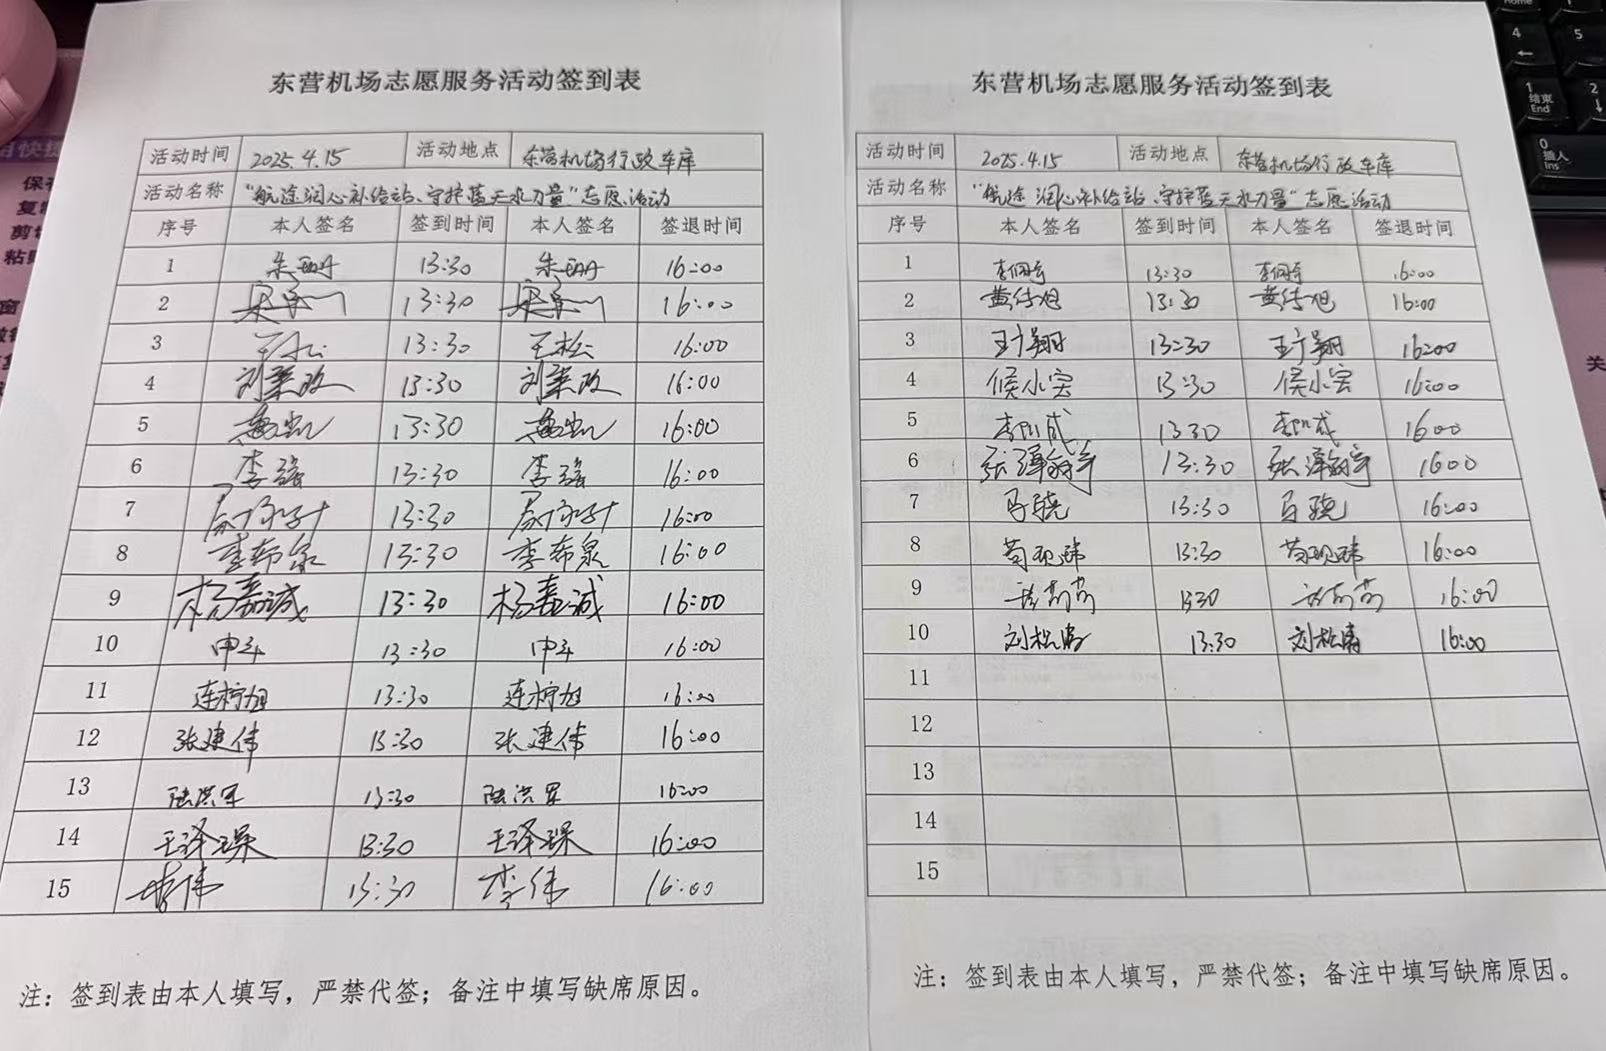 东营机场志愿服务活动签到表
活动时间 2025.4.15 活动地点 东营机场行政车库
活动名称 "航途润心补给站、守护蓝天水力量"志愿活动
序号 本人签名 签到时间 本人签名 签退时间
1 朱珊 13:30 朱珊 16:00
2 13:30 16:00
3 王松 13:30 王松 16:00
4 刘奉政 13:30 刘奉政 16:00
5 13:30 16:00
6 李强 13:30 李强 16:00
7 13:30 16:00
8 李希泉 13:30 李希泉 16:00
9 杨嘉诚 13:30 杨嘉诚 16:00
10 申斗 13:30 申斗 16:00
11 连柠旭 13:30 连柠旭 16:00
12 张建伟 13:30 张建伟 16:00
13 陆洪军 13:30 陆洪军 16:00
14 王泽琛 13:30 王泽琛 16:00
15 李伟 13:30 李伟 16:00
注：签到表由本人填写，严禁代签；备注中填写缺席原因。
东营机场志愿服务活动签到表
活动时间 2025.4.15 活动地点 东营机场行政车库
活动名称 "航途润心补给站、守护蓝天水力量"志愿活动
序号 本人签名 签到时间 本人签名 签退时间
1 13:30 16:00
2 黄传旭 13:30 黄传旭 16:00
3 王广翔 13:30 王广翔 16:00
4 侯小宏 13:30 侯小宏 16:00
5 13:30 16:00
6 13:30 16:00
7 马骁 13:30 马骁 16:00
8 苟现玮 13:30 苟现玮 16:00
9 13:30 16:00
10 刘松涛 13:30 刘松涛 16:00
11
12
13
14
15
注：签到表由本人填写，严禁代签；备注中填写缺席原因。